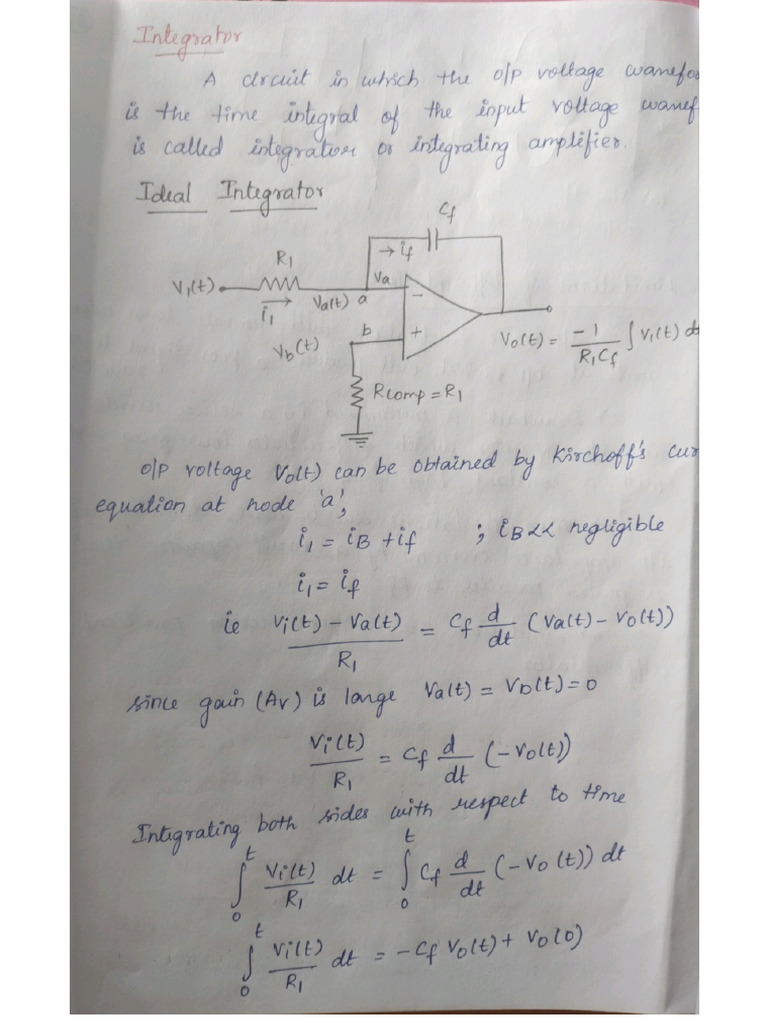 Integrator
A circuit in which the o/p voltage wavefo
is the time integral of the input voltage wavef
is called integrator or integrating amplifier.
Ideal Integrator
Cf
→ if
R1
V1(t)
i1
Va(t) a
Va
−
b
+
Vb(t)
Vo(t) = −1/R1Cf ∫ V1(t) dt
Rcomp = R1
o/p voltage Vo(t) can be obtained by Kirchoff's cur
equation at node 'a',
i1 = iB + if ; iB<< negligible
i1 = if
ie Vi(t) − Va(t)/R1 = Cf d/dt (Va(t) − Vo(t))
since gain (Av) is large Va(t) = Vb(t) = 0
Vi(t)/R1 = Cf d/dt (−Vo(t))
Integrating both sides with respect to time
∫0^t Vi(t)/R1 dt = ∫0^t Cf d/dt (−Vo(t)) dt
∫0^t Vi(t)/R1 dt = −Cf Vo(t) + Vo(0)